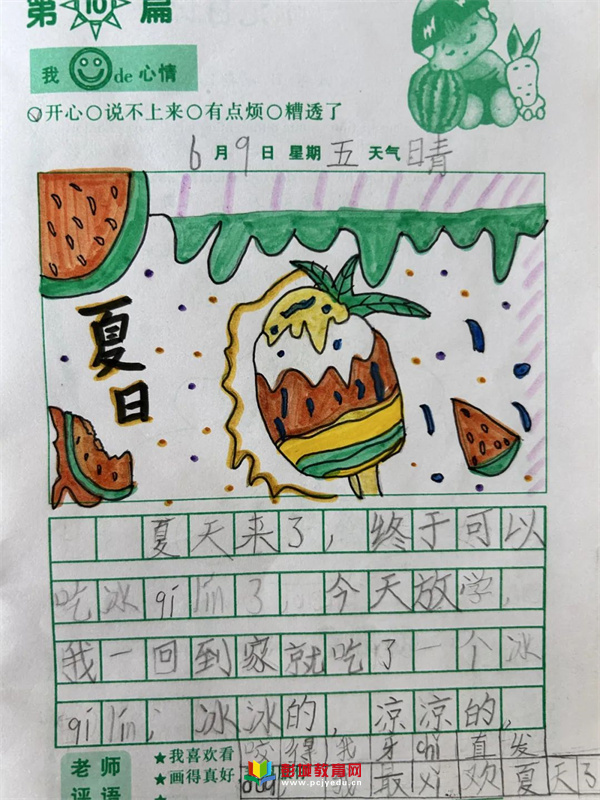 第10篇
我de心情
开心○说不上来○有点烦○糟透了
6月9日 星期五 天气晴
夏日
夏天来了，终于可以
吃冰qílín了，今天放学，
我一回到家就吃了一个冰
qílín，冰冰的，凉凉的，
咬得我牙chǐ直发
最xǐ欢夏天了
老师评语
★我喜欢看
★画得真好
彭城教育网
www.pcjyedu.cn